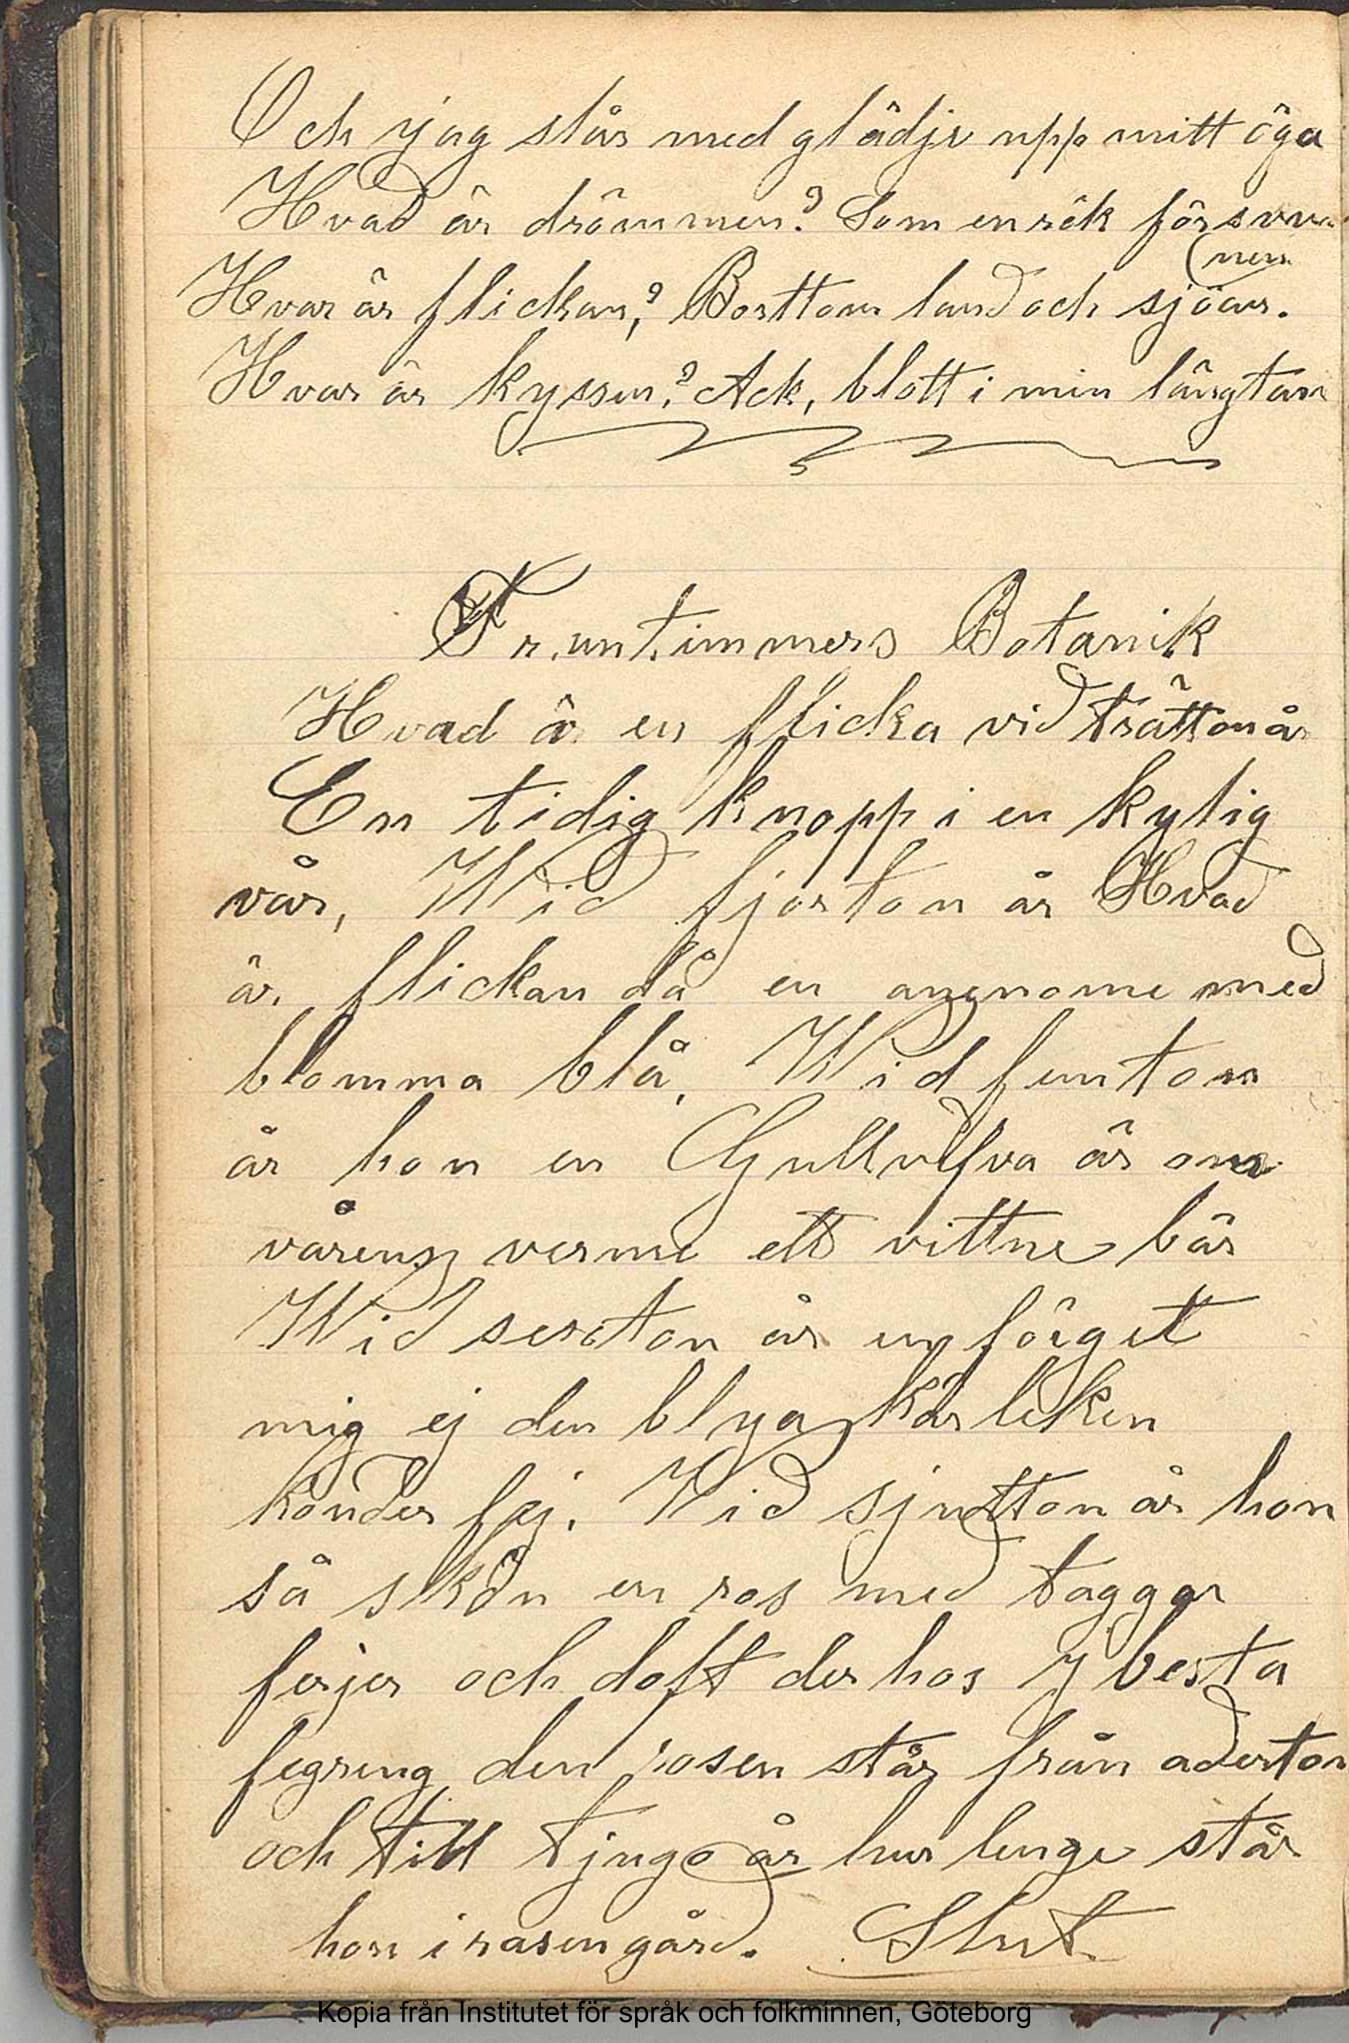 Och jag slår med glädje upp mitt öga
Hvad är drömmen? Som en rök försvun
(nen
Hvar är flickan,? Borttom land och sjöar.
Hvar är kyssen? Ack, blott i min längtan
Fruntimmers Botanik
Hvad är en flicka vid trätton år
En tidig knopp i en kylig
vår, Wid fjorton år Hvad
är flickan då en anenome med
blomma blå, Wid femton
år hon en Gullvifva är om
vårens verme ett vittne bär
Wid sexton år en förget
mig ej den blya kärleken
könder fej. Wid sjutton år hon
så skön en ros med taggar
ferjer och doft der hos J besta
fegring den rosen står från aderton
och till tjugo år hur lenge står
hon i rosengård. Slut
Kopia från Institutet för språk och folkminnen, Göteborg